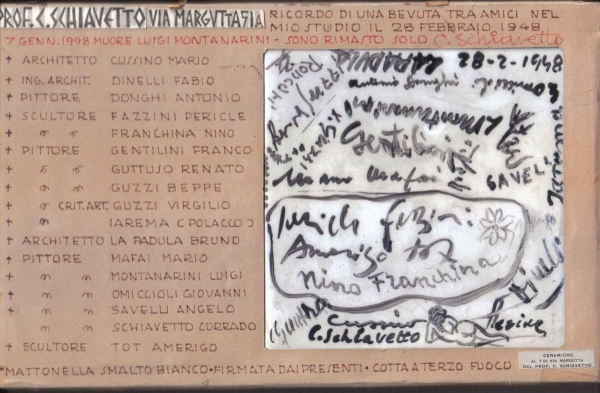 PROF. C. SCHIAVETTO VIA MARGUTTA 51A
RICORDO DI UNA BEVUTA TRA AMICI NEL
MIO STUDIO IL 28 FEBBRAIO 1948
7 GENN. 1998 MUORE LUIGI MONTANARINI - SONO RIMASTO SOLO C. Schiavetto
+ ARCHITETTO CUSSINO MARIO
+ ING. ARCHIT. DINELLI FABIO
+ PITTORE DONGHI ANTONIO
+ SCULTORE FAZZINI PERICLE
+ " " FRANCHINA NINO
+ PITTORE GENTILINI FRANCO
+ " " GUTTUSO RENATO
+ " " GUZZI BEPPE
+ " CRIT. ART. GUZZI VIRGILIO
+ " IAREMA (POLACCO)
+ ARCHITETTO LA PADULA BRUNO
+ PITTORE MAFAI MARIO
+ " " MONTANARINI LUIGI
+ " " OMICCIOLI GIOVANNI
+ " " SAVELLI ANGELO
" " SCHIAVETTO CORRADO
+ SCULTORE TOT AMERIGO
LAPADULA
28-2-1948
antonio Donghi
Omiccioli
Montanarini
Gentilini
SAVELLI
Mario Mafai
Pericle Fazzini
Amerigo tot
Nino Franchina
Dinelli
Cussino
C. Schiavetto
*MATTONELLA SMALTO BIANCO•FIRMATA DAI PRESENTI•COTTA A TERZO FUOCO
CERAMICHE
AL 1 DI VIA MARGUTTA
DEL PROF. C. SCHIAVETTO